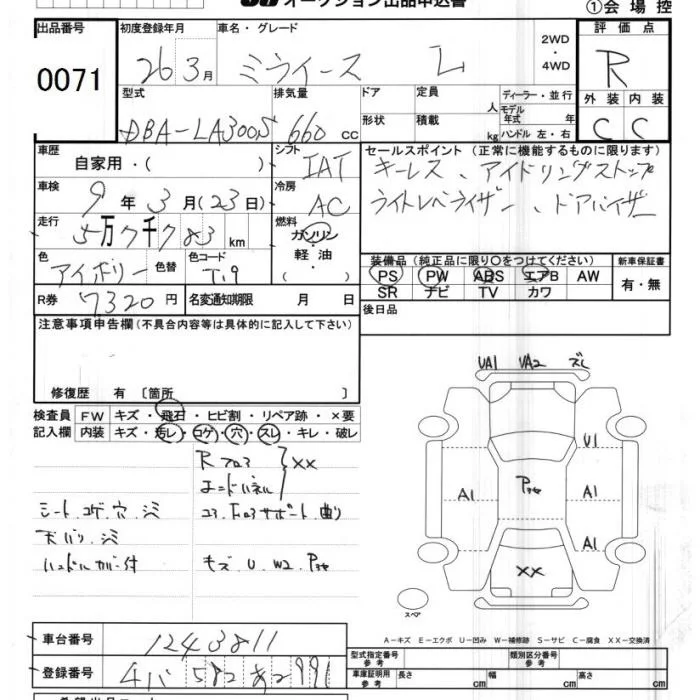 オークション出品申込書
①会場控
出品番号
0071
初度登録年月
26 3月
車名・グレード
ミライース L
2WD
・
4WD
評価点
R
外装 内装
C C
型式
DBA-LA300S
排気量
660 cc
ドア
形状
定員
人
積載
kg
ディーラー・並行
モデル
年式 年
ハンドル 左・右
車歴
自家用・( )
シフト
IAT
セールスポイント (正常に機能するものに限ります)
キーレス、アイドリングストップ
ライトレベライザー、ドアバイザー
車検
9年3月(23日)
冷房
AC
走行
5万7千783 km
燃料
ガソリン
軽油
( )
色
アイボリー
色替
色コード
T19
装備品 (純正品に限り○をつけてください)
PS PW ABS エアB AW
SR ナビ TV カワ
新車保証書
有・無
R券
7320円
名変通知期限 月 日
後日品
注意事項申告欄 (不具合内容等は具体的に記入して下さい)
修復歴 有 〔箇所 〕
検査員
記入欄
FW キズ・飛石・ヒビ割・リペア跡・×要
内装 キズ・汚レ・コゲ・穴・スレ・キレ・破レ
Rフロア
エンドパネル
××
シート、コゲ、穴、シミ
天バリ、シミ
ハンドルカバー付
キズ、U、W2、P
UA1 UA2 ズレ
U1
A1 A1
A1
P
××
スペア
A-キズ E-エクボ U-凹み W-補修跡 S-サビ C-腐食 XX-交換済
車台番号
1243811
登録番号
型式指定番号
参考
類別区分番号
参考
車庫証明用
参考
長さ cm
幅 cm
高さ cm